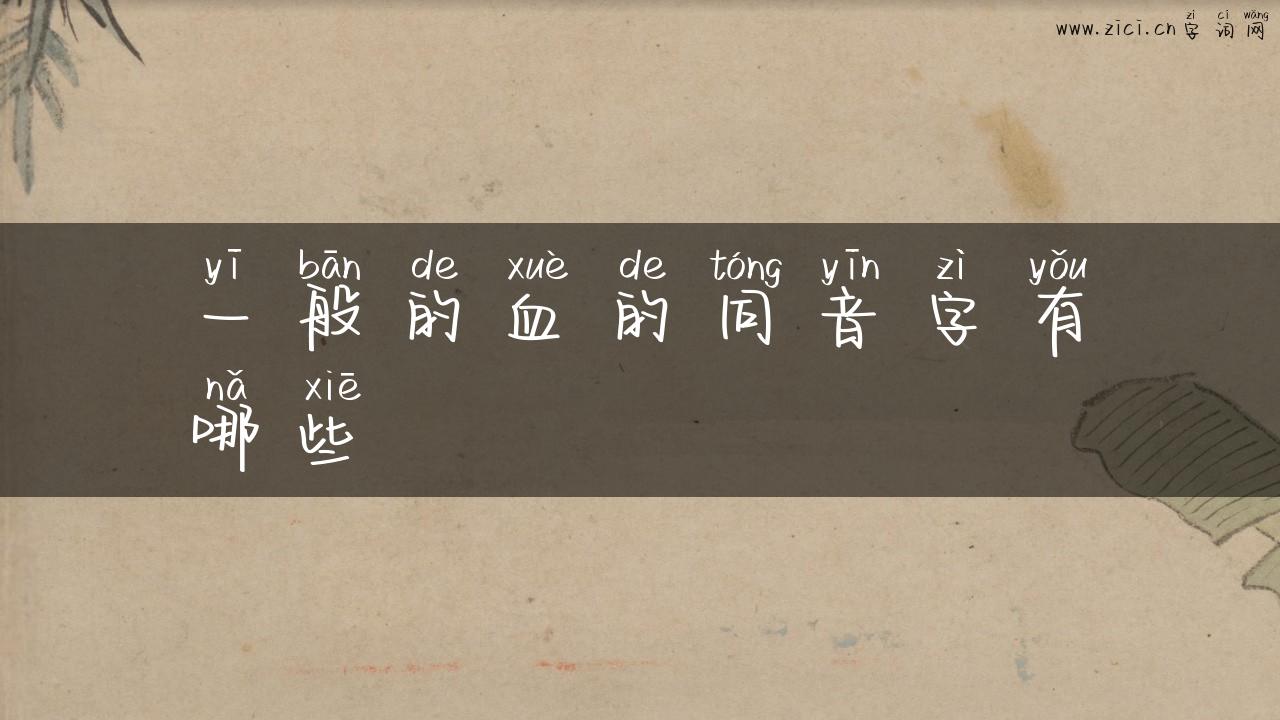 zì cí wǎng
www.zici.cn 字词网
yī bān de xuè de tóng yīn zì yǒu
一般的血的同音字有
nǎ xiē
哪些